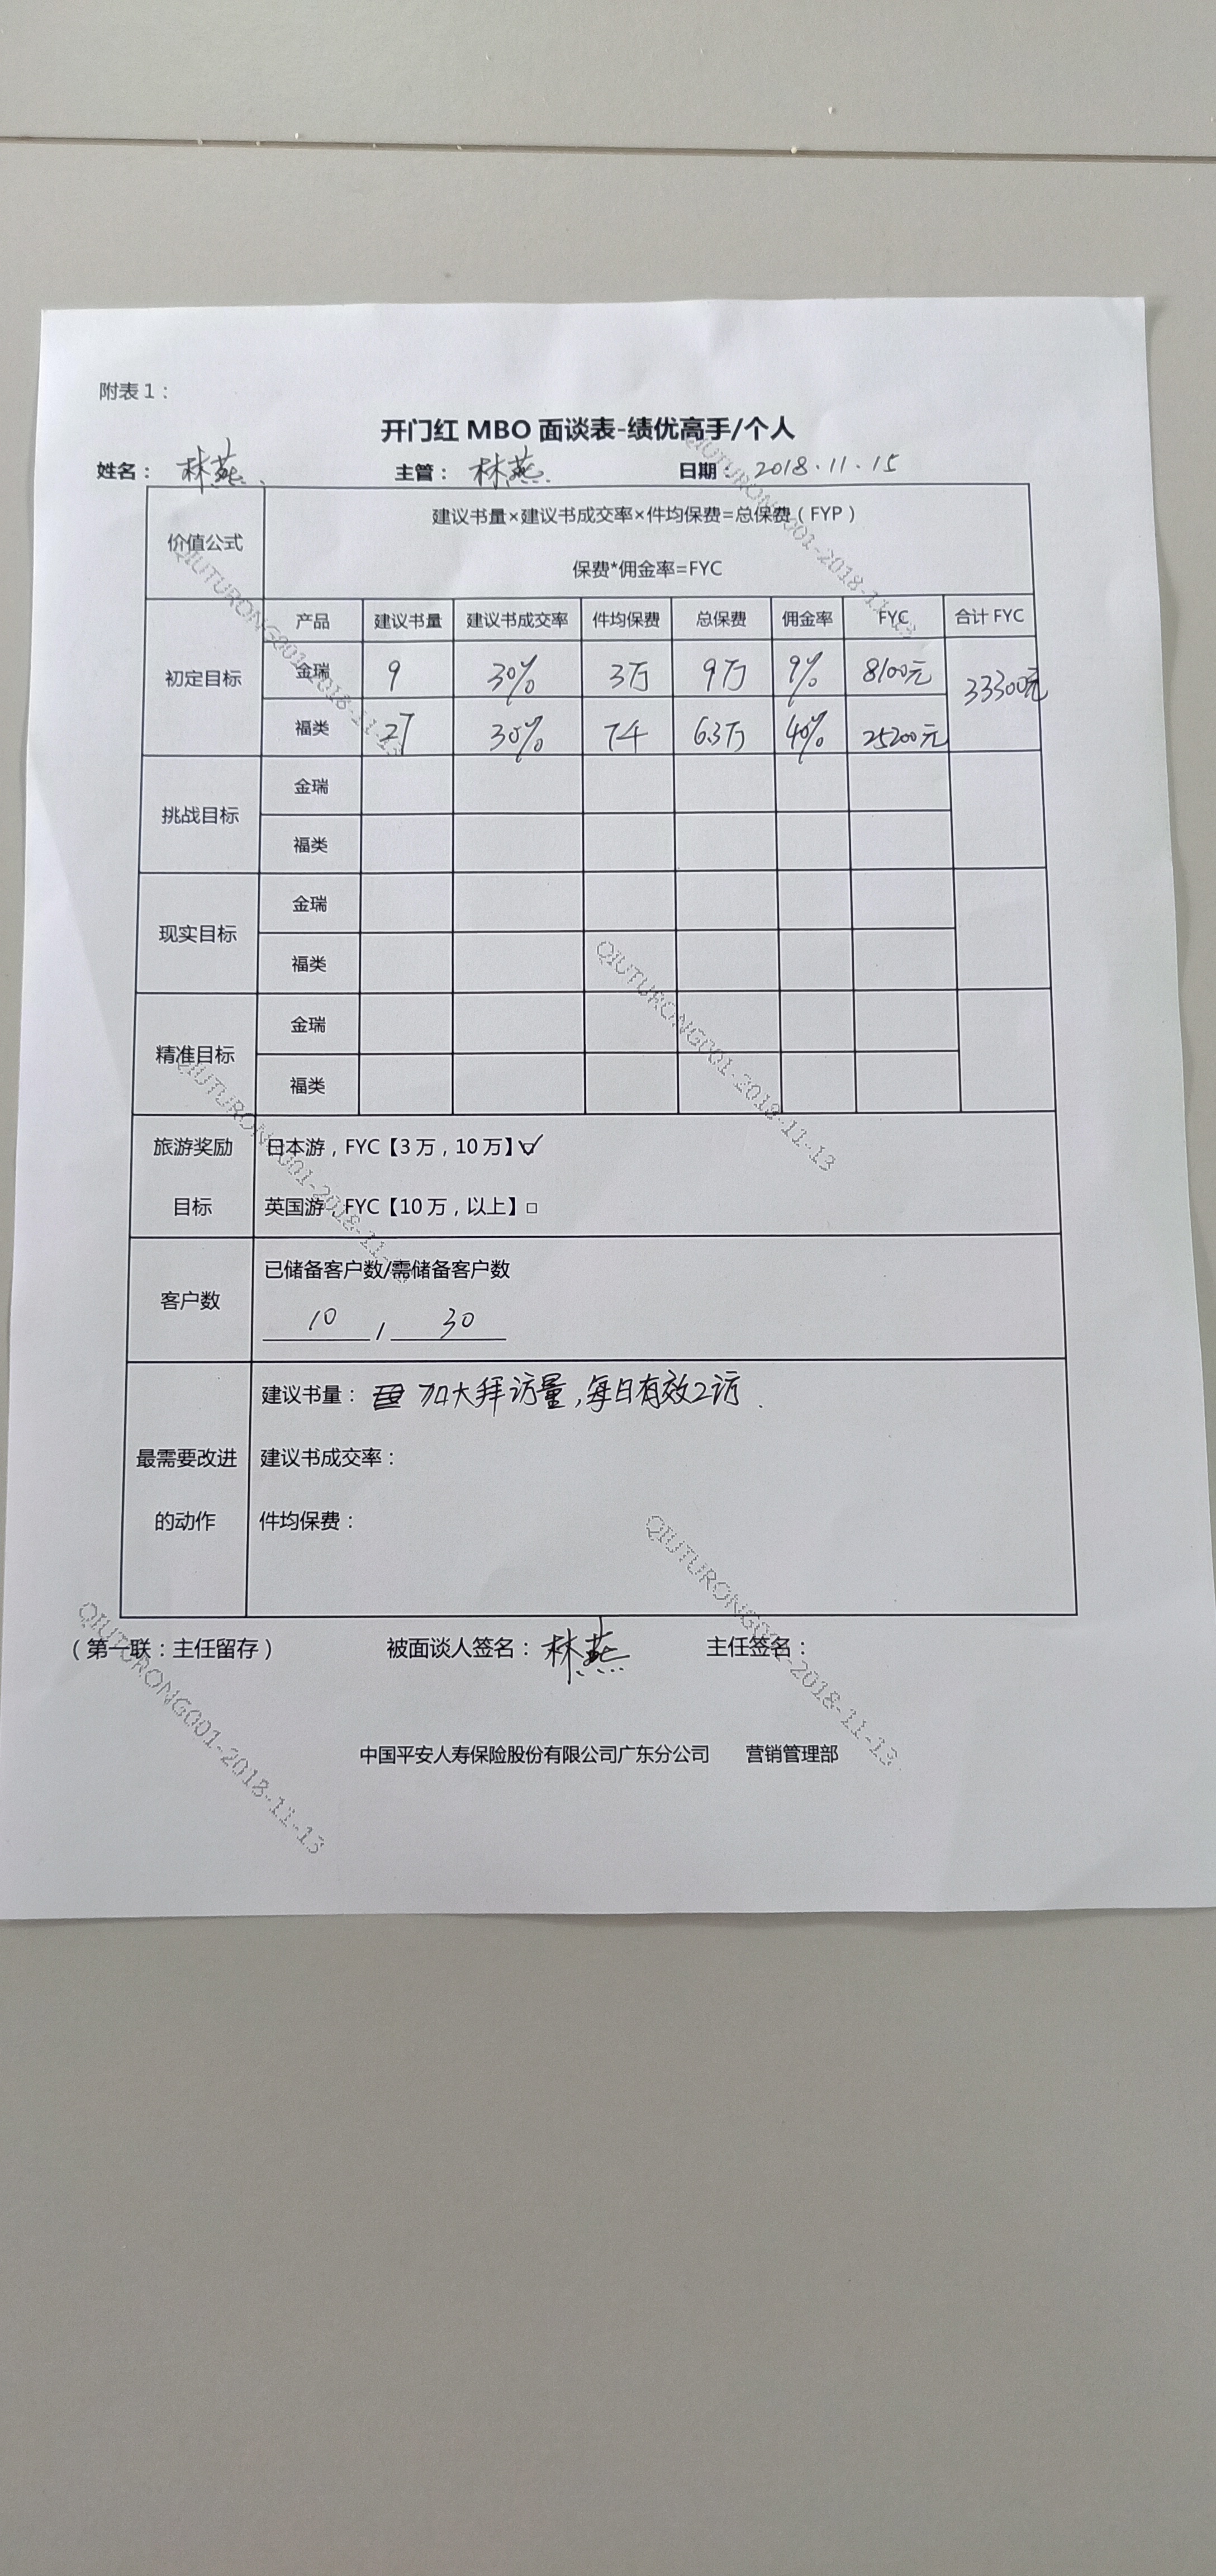 附表1：
开门红 MBO 面谈表-绩优高手/个人
姓名： 林燕 主管： 林燕 日期： 2018.11.15
价值公式
建议书量×建议书成交率×件均保费=总保费（FYP）
保费*佣金率=FYC
初定目标 产品 建议书量 建议书成交率 件均保费 总保费 佣金率 FYC 合计 FYC
金瑞 9 30% 3万 9万 9% 8100元 33300元
福类 27 30% 7千 6.3万 40% 25200元
挑战目标
金瑞
福类
现实目标
金瑞
福类
精准目标
金瑞
福类
旅游奖励目标
日本游，FYC【3万，10万】☑
英国游，FYC【10万，以上】□
客户数
已储备客户数/需储备客户数
10 / 30
最需要改进的动作
建议书量： 加大拜访量，每日有效2访.
建议书成交率：
件均保费：
（第一联：主任留存） 被面谈人签名： 林燕 主任签名：
中国平安人寿保险股份有限公司广东分公司 营销管理部
QIUTURONG001-2018-11-13
QIUTURONG001-2018-11-13
QIUTURONG001-2018-11-13
QIUTURONG001-2018-11-13
QIUTURONG001-2018-11-13
QIUTURONG001-2018-11-13